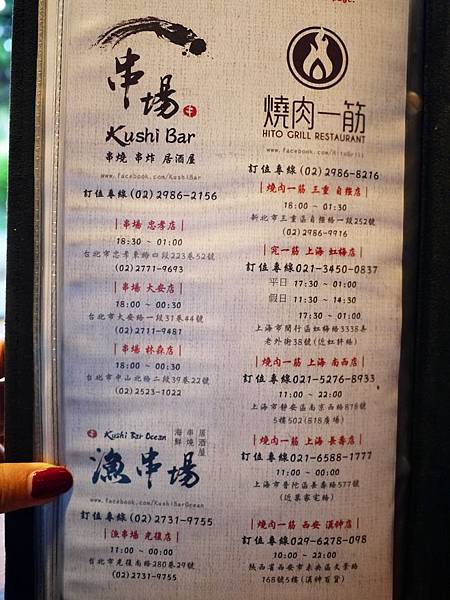 page.
串場
Kushi Bar
串燒 串炸 居酒屋
www.facebook.com/KushiBar
訂位專線(02)2986-2156
|串場 忠孝店|
18:30 ~ 01:00
台北市忠孝東路四段223巷52號
(02)2771-9693
|串場 大安店|
18:00 ~ 00:30
台北市大安路一段31巷44號
(02)2711-9481
|串場 林森店|
18:00 ~ 00:30
台北市中山北路二段39巷22號
(02)2523-1022
Kushi Bar Ocean
海鮮串燒居酒屋
漁串場
www.facebook.com/KushiBarOcean
訂位專線(02)2731-9755
|漁串場 光復店|
11:00 ~ 00:00
台北市光復南路280巷29號
(02)2731-9755
燒肉一筋
HITO GRILL RESTAURANT
www.facebook.com/HitoGrill
訂位專線(02)2986-8216
|燒肉一筋 三重 自強店|
18:00 ~ 01:30
新北市三重區自強路一段252號
(02)2986-9916
|完一筋 上海 虹梅店|
訂位專線021-3450-0837
平日 17:30 ~ 01:00
假日 11:30 ~ 14:30
17:30 ~ 01:00
上海市閔行區虹梅路3338弄
老外街38號(近虹許路)
|燒肉一筋 上海 南西店|
訂位專線021-5276-8933
11:00 ~ 22:00
上海市靜安區南京西路818號
5樓502(818廣場)
|燒肉一筋 上海 長壽店|
訂位專線021-6588-1777
11:00 ~ 00:00
上海市普陀區長壽路577號
(近葉家宅路)
|燒肉一筋 西安 漢神店|
訂位專線029-6278-098
10:00 ~ 22:00
陝西省西安市未央區文景路
168號5樓(漢神百貨)